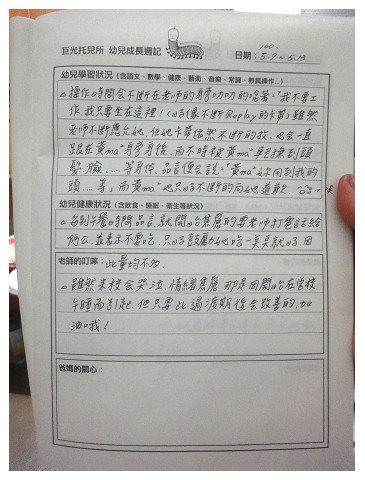 巨光托兒所 幼兒成長週記
100.
日期：5.9~5.13
幼兒學習狀況（含語文、數學、健康、藝術、音樂、常識、教具操作...）
△操作時間會不斷在老師的身旁叨叨的唸著："我不要工
作,我只要坐在這裡！（口好像不斷Replay的卡帶)雖然
老師不斷應允她,但她卡帶依然不斷的放,也會一直
跟在黃ma"身旁身後,而不時被黃ma"
髮、臉....等身体.品言便會說："黃ma"妳回到我的
頭....等,而黃ma"也只好不斷的向她道歉.
幼兒健康狀況（含飲食、睡眠、衛生等狀況）
△每到午餐時間品言就開始焦慮的要老師打電話給
阿公,並表示不要吃,只好鼓勵她吃一点点就好.因
老師的叮嚀：此量均不多.
△雖然來校會哭泣、情緒焦慮那是因開始在學校
午睡而引起.但只要此過渡期後會改善的.加
油哦！
爸媽的關心：